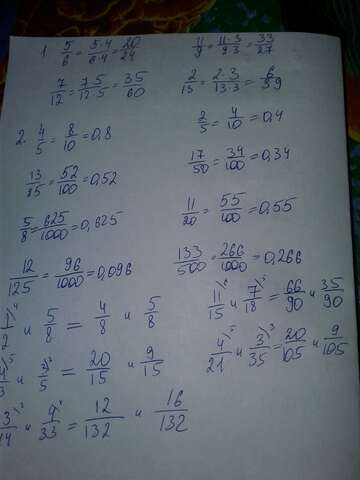 1. 5/6 = 5·4/6·4 = 20/24    11/9 = 11·3/9·3 = 33/27
7/12 = 7·5/12·5 = 35/60    2/13 = 2·3/13·3 = 6/39
2. 4/5 = 8/10 = 0,8    2/5 = 4/10 = 0,4
13/25 = 52/100 = 0,52    17/50 = 34/100 = 0,34
5/8 = 625/1000 = 0,625    11/20 = 55/100 = 0,55
12/125 = 96/1000 = 0,096    133/500 = 266/1000 = 0,266
1/2 и 5/8 = 4/8 и 5/8    11/15 и 7/18 = 66/90 и 35/90
4/3 и 3/5 = 20/15 и 9/15    4/21 и 3/35 = 20/105 и 9/105
и 4/33 = 12/132 и 16/132